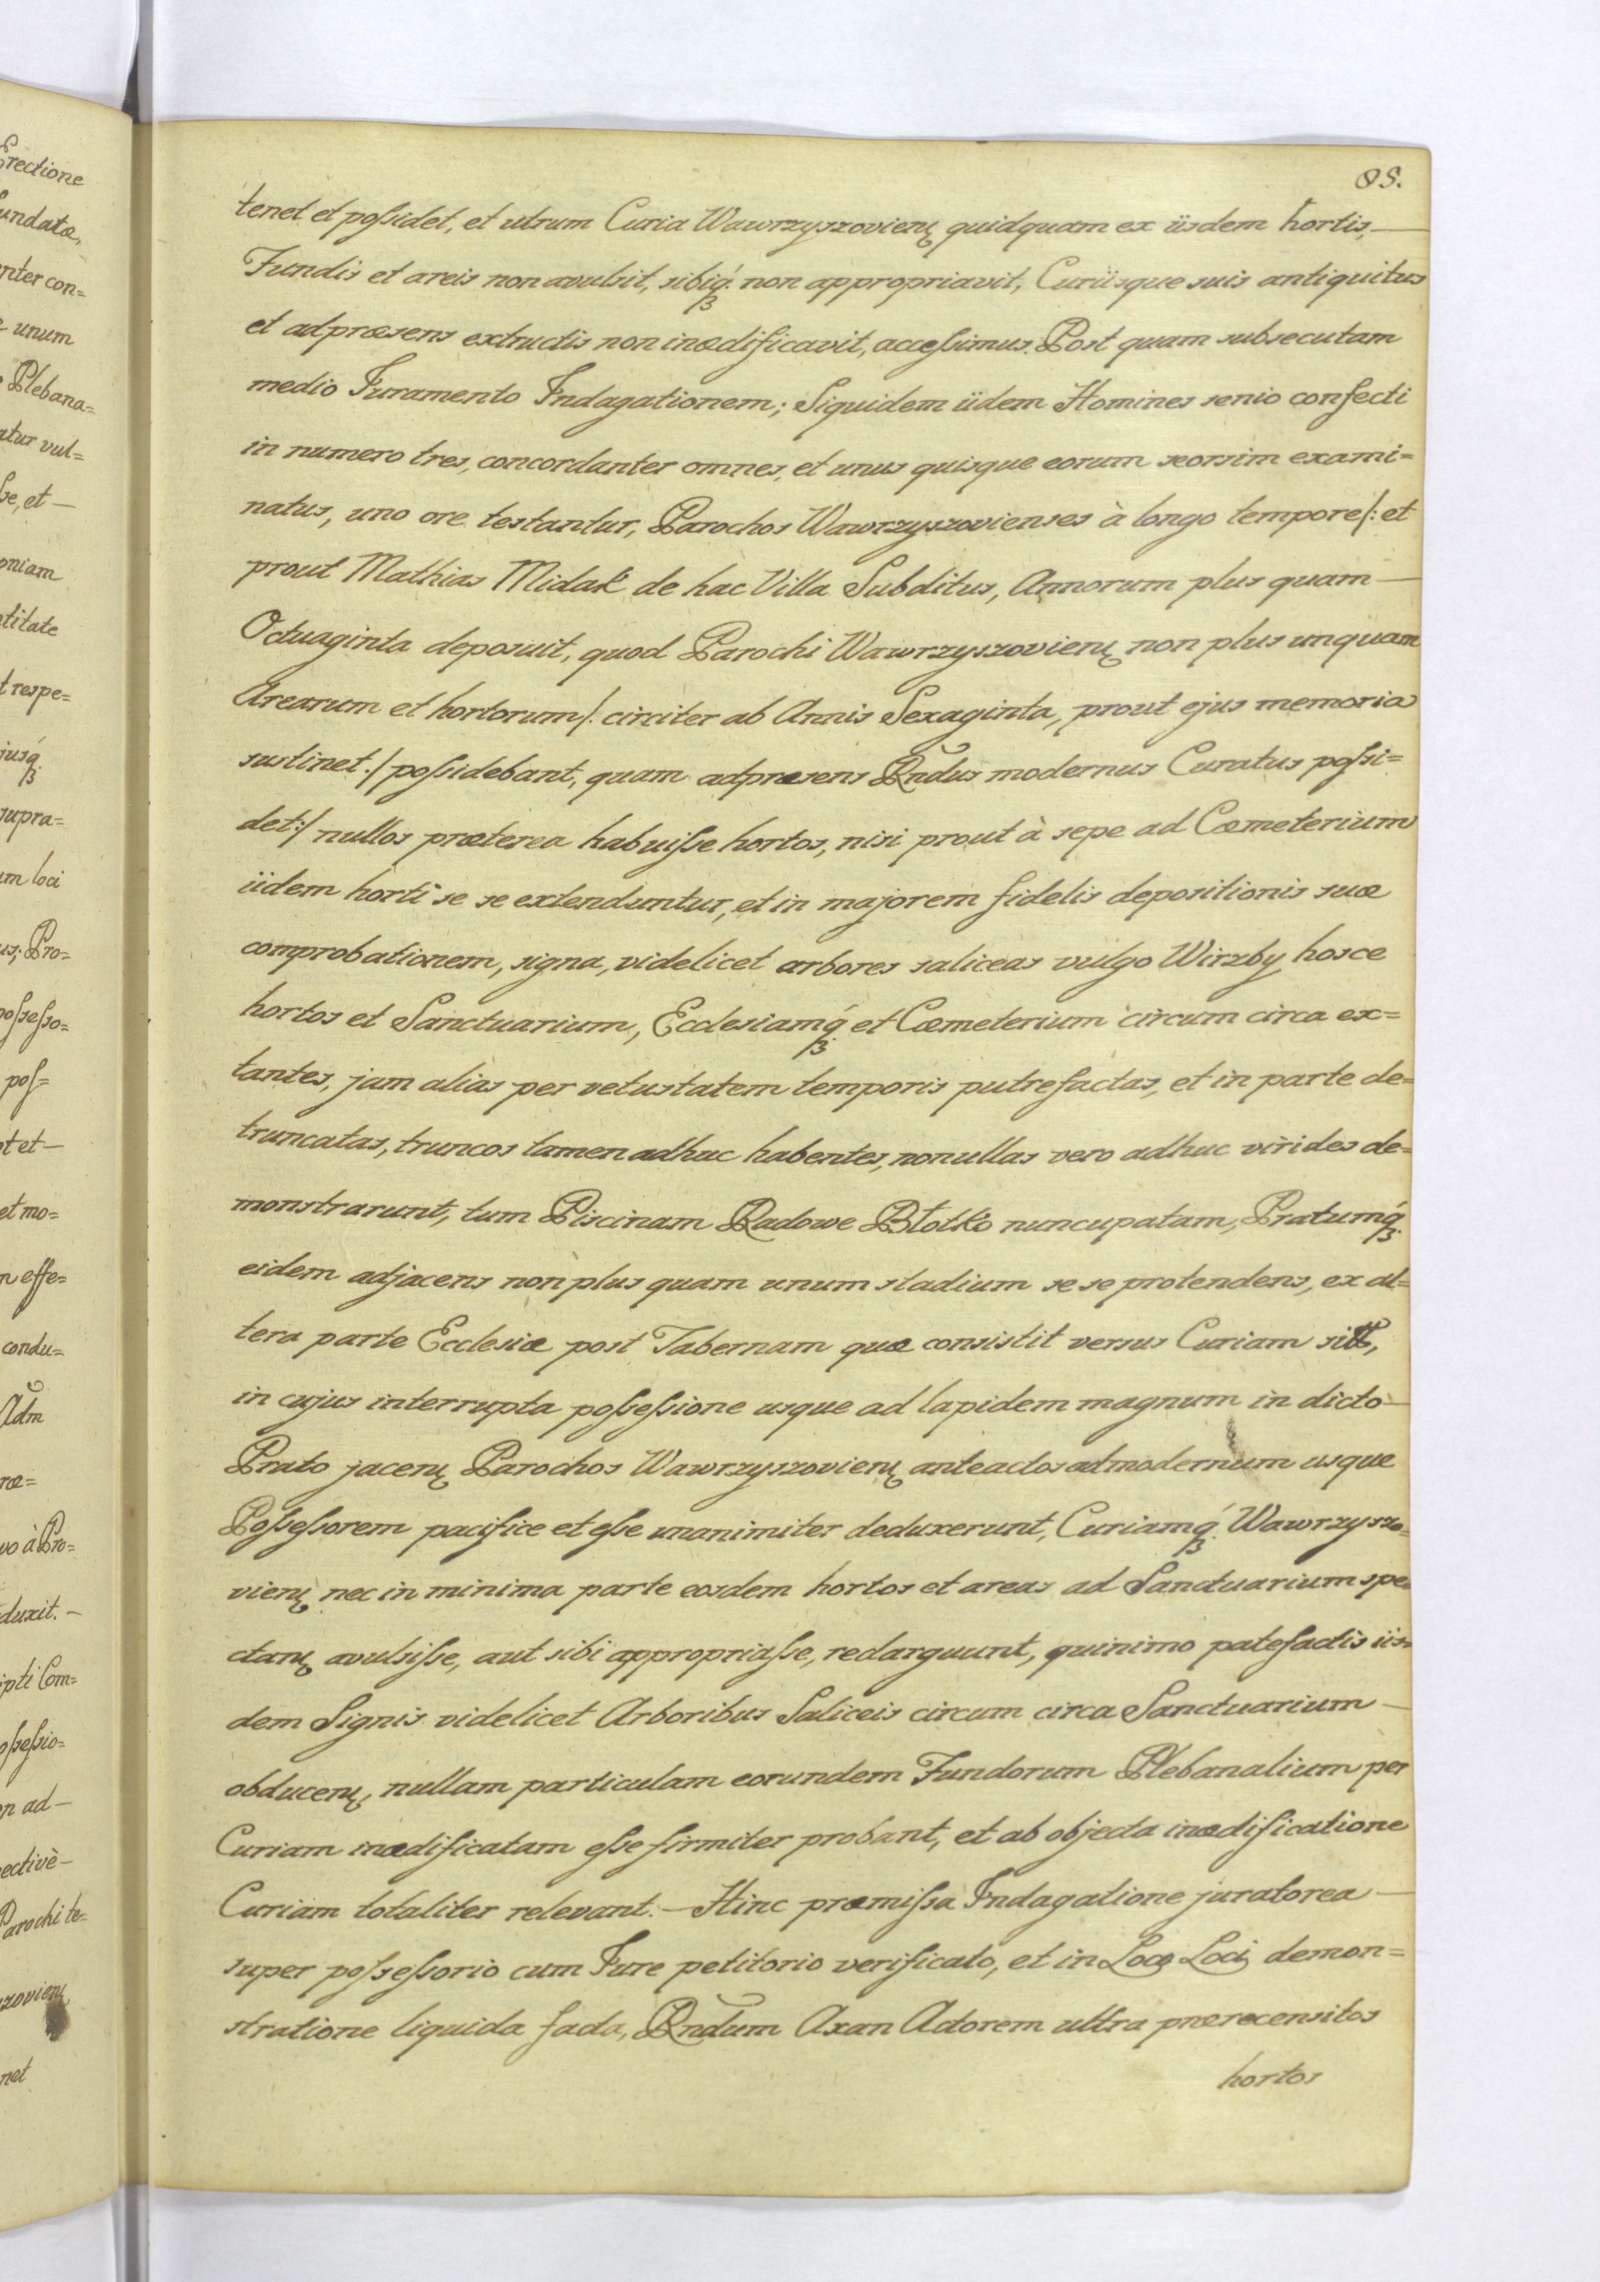 Erectione
undatæ,
nter con=
unum
Plebana=
atur vul=
sse, et —
oniam
ntitate
t respe=
jusq́ꝫ
supra=
um loci
us; Pro=
possesso=
pos=
ot et —
et mo=
n effe=
condu=
Adm̃
ræ=
vo à Pro=
duxit. —
ipti Com=
ossessio=
on ad —
ective —
Parochi te=
zovien̨
net
98.
tenet et possidet, et utrum Curia Wawrzyszovien̨ quidquam ex iisdem hortis, —
Fundis et areis non avulsit, sibiq́ꝫ non appropriavit, Curiisque suis antiquitus
et adpræsens extructis non inædificavit, accessimus. Post quam subsecutam
medio Juramento Indagationem; Siquidem iidem Homines senio confecti
in numero tres, concordanter omnes, et unus quisque eorum seorsim exami=
natus, uno ore testantur, Parochos Wawrzyszovienses à longo tempore /: et
prout Mathias Midak de hac Villa Subditus, Annorum plus quam —
Octuaginta deposuit, quod Parochi Wawrzyszovien̨ non plus unquam
Arearum et hortorum /: circiter ab Annis Sexaginta, prout ejus memoria
sustinet :/ possidebant, quam adpræsens Rñdus modernus Curatus possi=
det :/ nullos præterea habuisse hortos, nisi prout à sepe ad Cæmeterium
iidem horti se se extenduntur, et in majorem fidelis depositionis suæ
comprobationem, signa, videlicet arbores saliceas vulgo Wirzby hosce
hortos et Sanctuarium, Ecclesiamq́ꝫ et Cæmeterium circum circa ex=
tantes, jam alias per vetustatem temporis putrefactas, et in parte de=
truncatas, truncos tamen adhuc habentes, nonullas vero adhuc virides de=
monstrarunt, tum Piscinam Radowe Błotko nuncupatam, Pratumq́ꝫ
eidem adjacens non plus quam unum stadium se se protendens, ex al=
tera parte Ecclesiæ post Tabernam quæ consistit versus Curiam
in cujus interrupta possessione usque ad lapidem magnum in dicto —
Prato jacen̨ Parochos Wawrzyszovien̨ anteactos ad modernum usque
Possessorem pacifice et esse unanimiter deduxerunt, Curiamq́ꝫ Wawrzyszo=
vien̨ nec in minima parte eosdem hortos et areas ad Sanctuarium spe=
ctan̨ avulsisse, aut sibi appropriasse, redarguunt, quinimo patefactis iis=
dem Signis videlicet Arboribus Saliceis circum circa Sanctuarium —
obducen̨, nullam particulam eorundem Fundorum Plebanalium per
Curiam inædificatam esse firmiter probant, et ab objecta inædificatione
Curiam totaliter relevant. — Hinc præmissa Indagatione juratorea —
super possessorio cum Jure petitorio verificato, et in Loco Loci demon=
stratione liquida facta, Rñdum Axan Actorem ultra prærecensitos
hortos